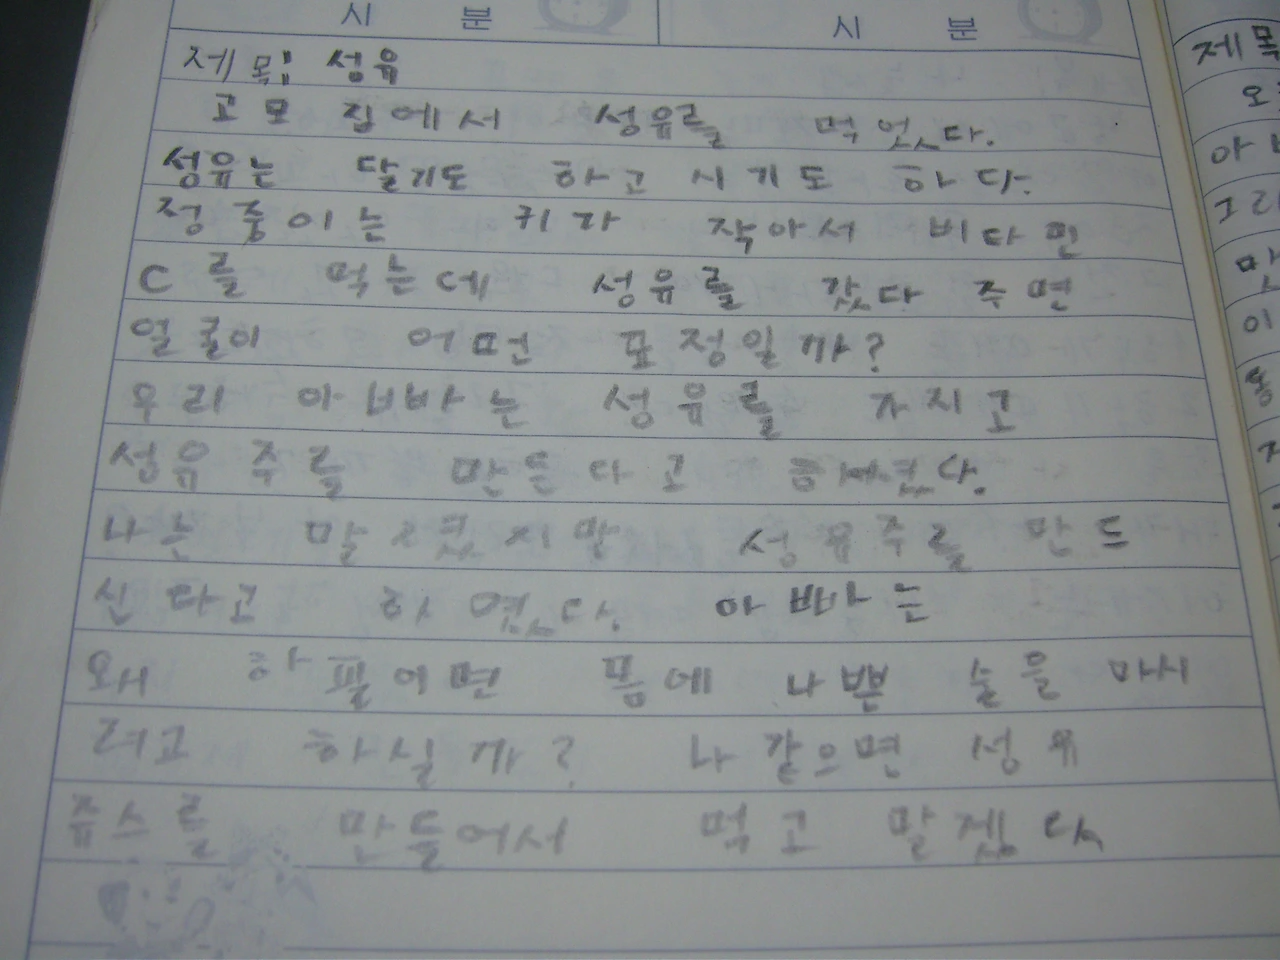 시 분 시 분
제목: 성유
고모 집에서 성유를 먹엇다.
성유는 달기도 하고 시기도 하다.
정중이는 키가 작아서 비다민
C를 먹는데 성유를 갔다 주면
얼굴이 어떤 표정일까?
우리 아빠는 성유를 가지고
성유주를 만든다고 하셨다.
나는 말렸지만 성유주를 만드
신다고 하였다. 아빠는
왜 하필이면 몸에 나쁜 술을 마시
려고 하실까? 나 같으면 성유
쥬스를 만들어서 먹고 말겠다.
제목
오
아
그리
맛
이